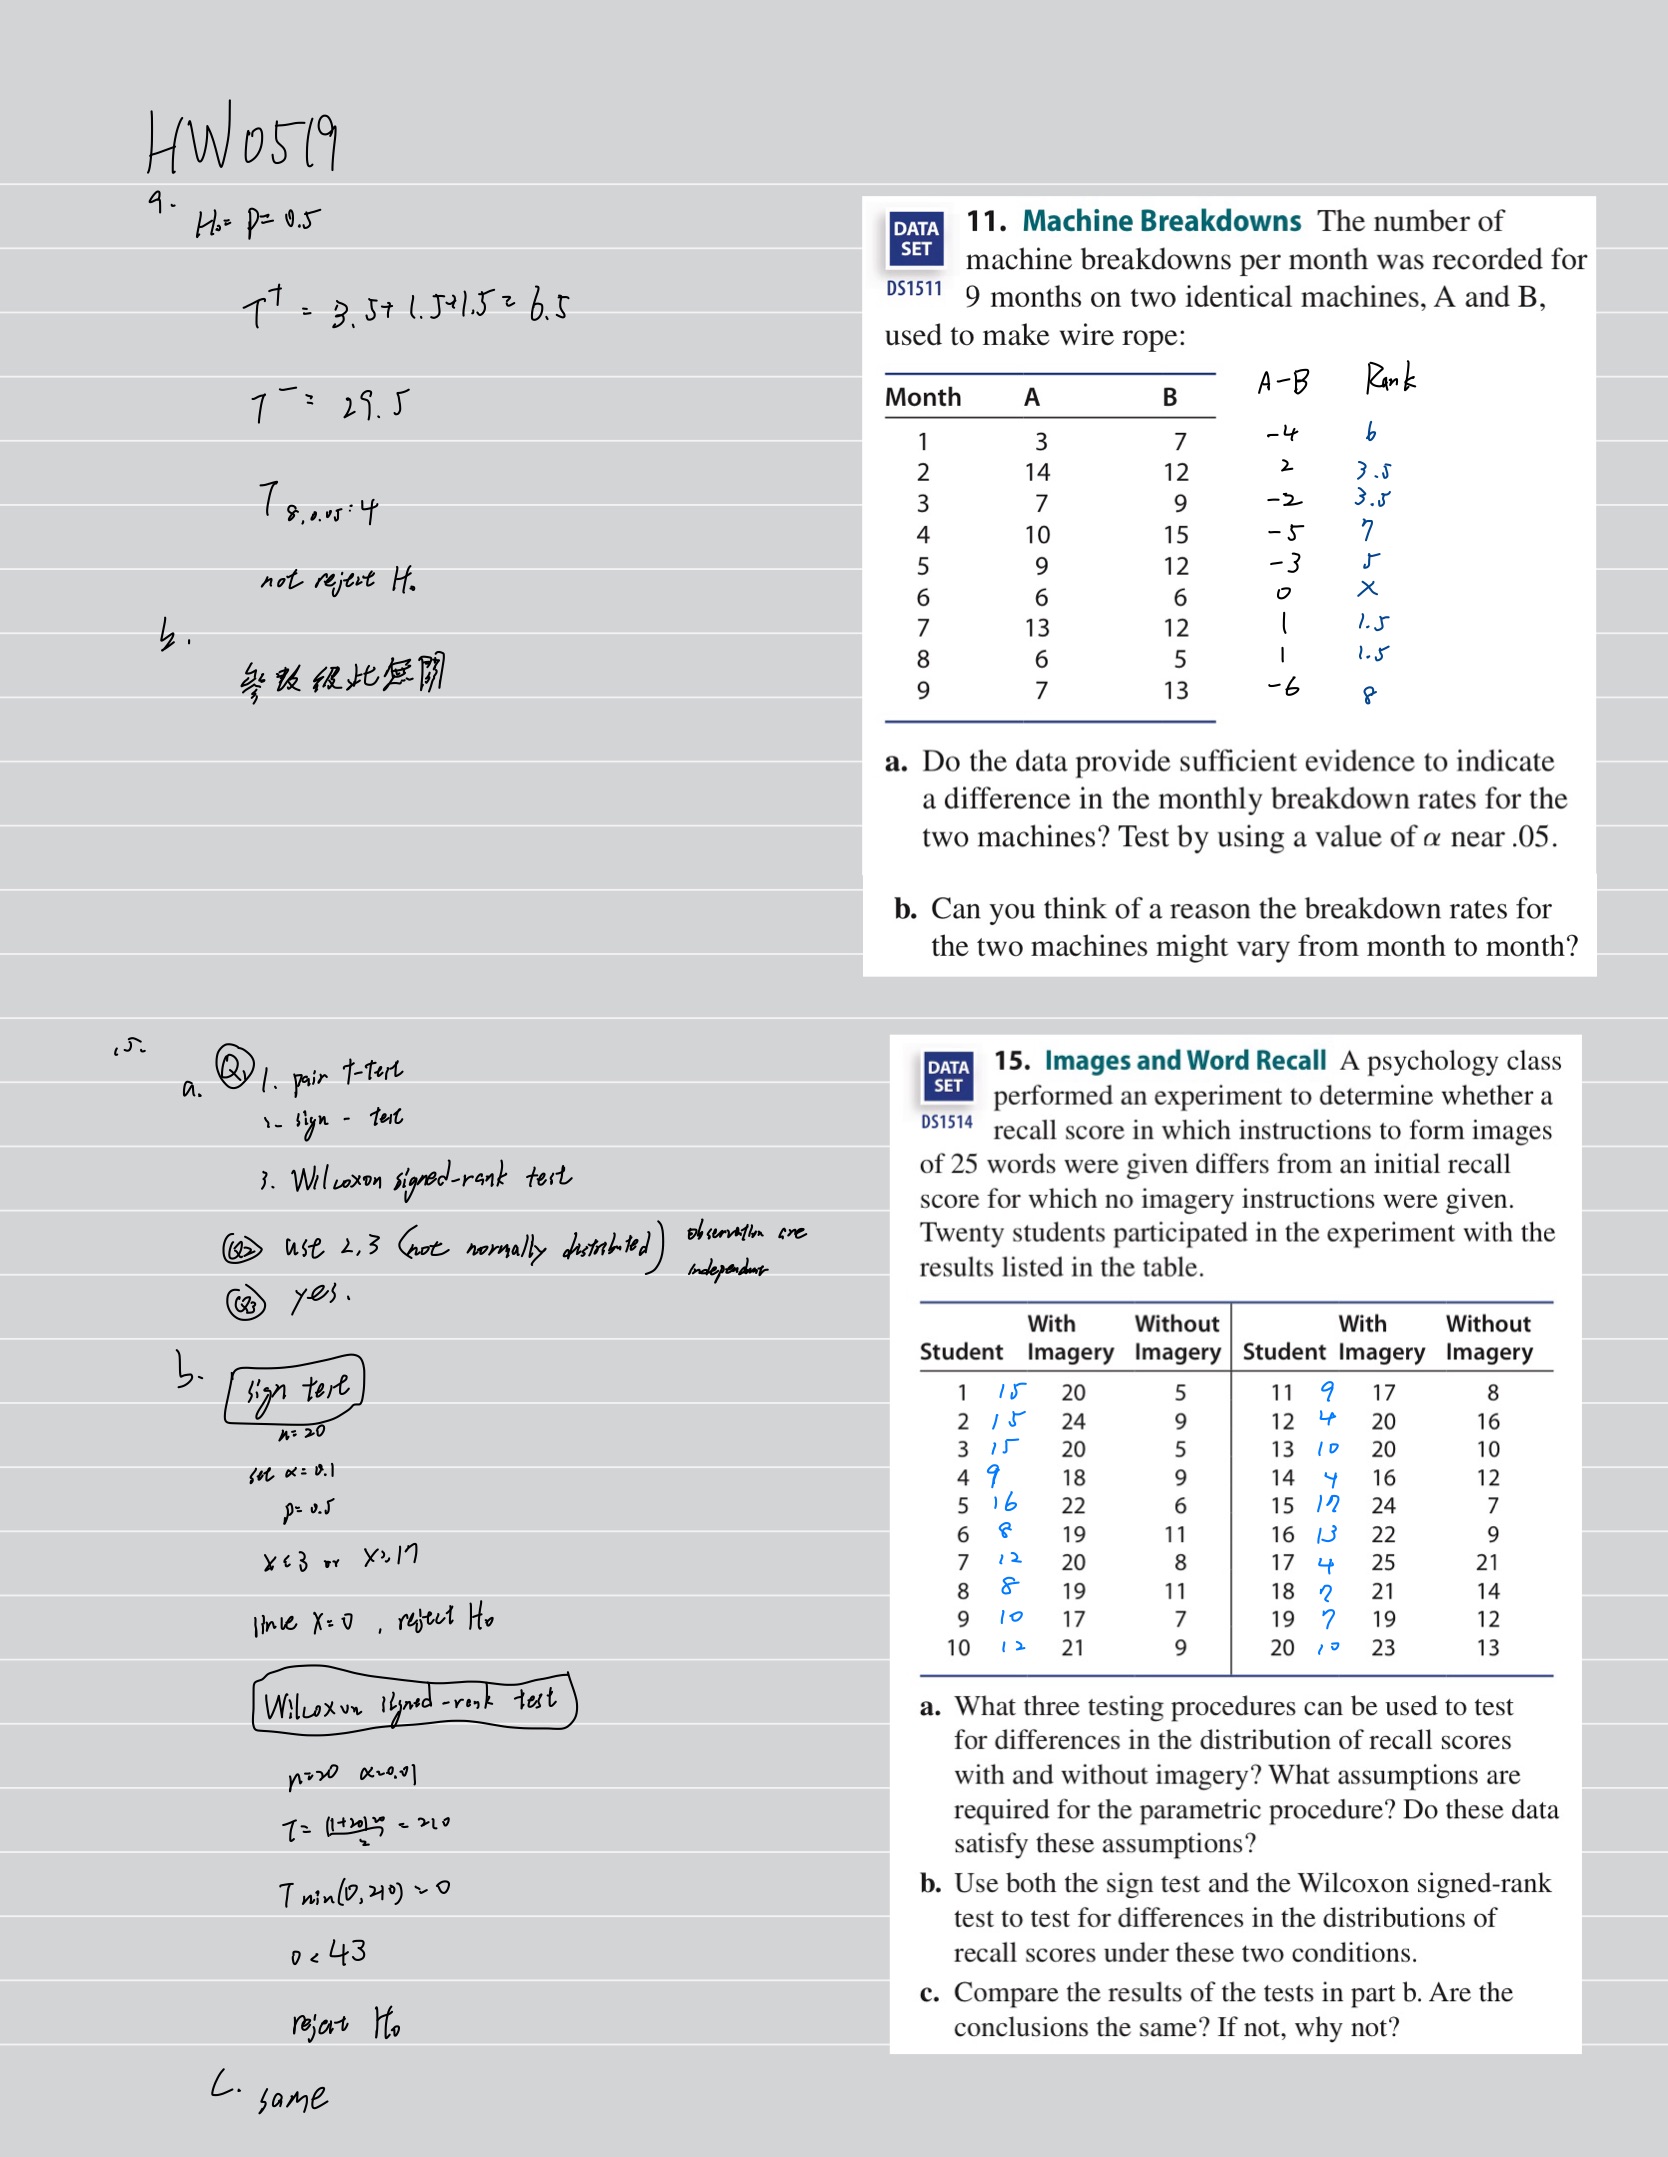 HW0519
a.
H₀= P= 0.5
T⁺ = 3.5+ 1.5+1.5 = 6.5
T⁻ = 29.5
T 8,0.05 : 4
not reject H₀
b.
參數彼此無關
DATA SET
DS1511
11. Machine Breakdowns The number of
machine breakdowns per month was recorded for
9 months on two identical machines, A and B,
used to make wire rope:
Month A B A-B Rank
1 3 7 -4 6
2 14 12 2 3.5
3 7 9 -2 3.5
4 10 15 -5 7
5 9 12 -3 5
6 6 6 0 ×
7 13 12 1 1.5
8 6 5 1 1.5
9 7 13 -6 8
a. Do the data provide sufficient evidence to indicate
a difference in the monthly breakdown rates for the
two machines? Test by using a value of α near .05.
b. Can you think of a reason the breakdown rates for
the two machines might vary from month to month?
15.
a. Q1 1. pair t-test
2. sign - test
3. Wilcoxon signed-rank test
Q2 use 2,3 (not normally distributed) observation are
independent
Q3 yes.
b. sign test
n=20
set α=0.1
p=0.5
x≤3 or x≥17
since x=0, reject H₀
Wilcoxon signed-rank test
n=20 α=0.01
T= (1+20)20/2 = 210
T min(0,210) = 0
0 < 43
reject H₀
c. same
DATA SET
DS1514
15. Images and Word Recall A psychology class
performed an experiment to determine whether a
recall score in which instructions to form images
of 25 words were given differs from an initial recall
score for which no imagery instructions were given.
Twenty students participated in the experiment with the
results listed in the table.
With Without With Without
Student Imagery Imagery Student Imagery Imagery
1 15 20 5 11 9 17 8
2 15 24 9 12 4 20 16
3 15 20 5 13 10 20 10
4 9 18 9 14 4 16 12
5 16 22 6 15 17 24 7
6 8 19 11 16 13 22 9
7 12 20 8 17 4 25 21
8 8 19 11 18 7 21 14
9 10 17 7 19 7 19 12
10 12 21 9 20 10 23 13
a. What three testing procedures can be used to test
for differences in the distribution of recall scores
with and without imagery? What assumptions are
required for the parametric procedure? Do these data
satisfy these assumptions?
b. Use both the sign test and the Wilcoxon signed-rank
test to test for differences in the distributions of
recall scores under these two conditions.
c. Compare the results of the tests in part b. Are the
conclusions the same? If not, why not?